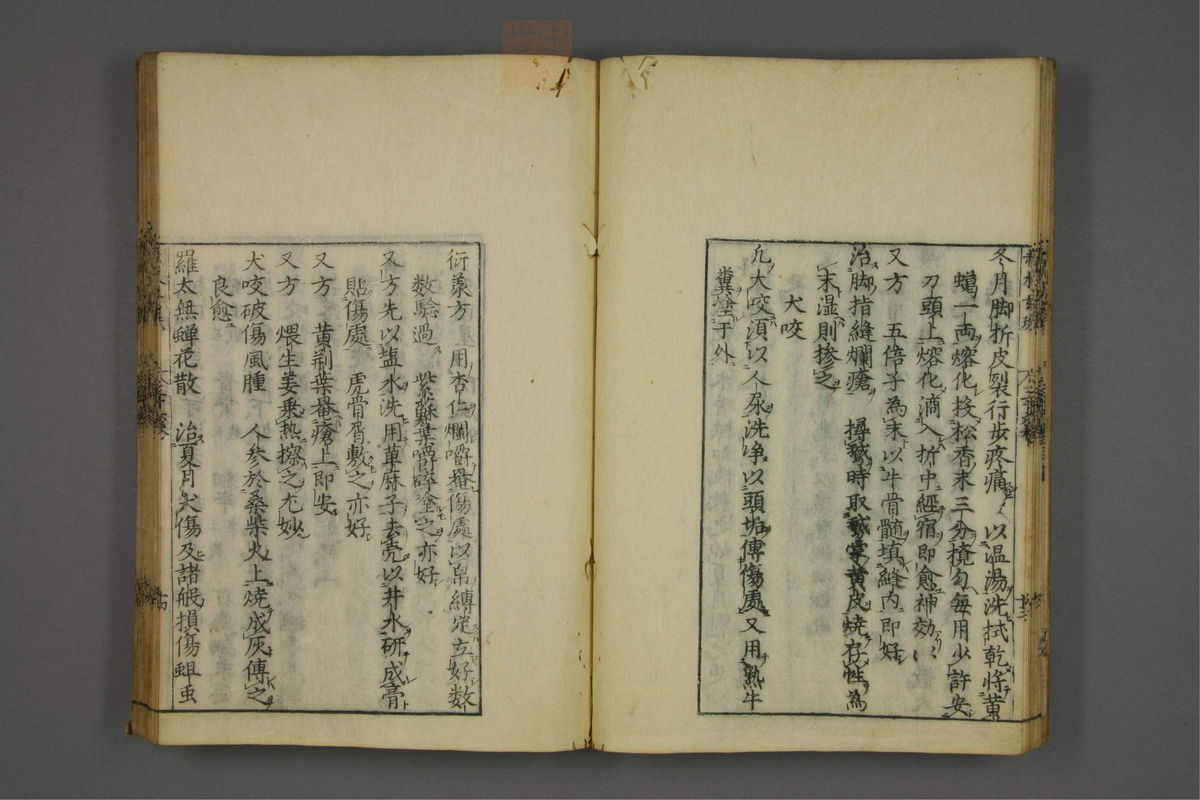 冬月脚折皮裂行歩疼痛　以温湯洗拭乾将黄
蝋一両熔化投松香末三分撹匀毎用少許安
刀頭上熔化滴入折中經宿即愈神効
又方　五倍子為末以牛骨髄填縫内即好
治脚指縫爛瘡　撏鵞時取鵞掌黄皮焼存性為
末湿則掺之
犬咬
凢犬咬須以人尿洗浄以頭垢傅傷處又用熟牛
糞塗于外
衍義方　用杏仁爛嚼罨傷處以帛縛定立好数
数驗過　紫蘇葉嚼碎塗之亦好
又方先以塩水洗用草麻子去壳以井水研成膏
貼傷處　虎骨屑敷之亦好
又方　黄荊葉罨瘡上即安
又方　煨生姜乗熱擦之尤妙
犬咬破傷風腫　人参於桑柴火上焼成灰傅之
良愈
羅太無蝉花散　治夏月犬傷及諸般損傷蛆虫